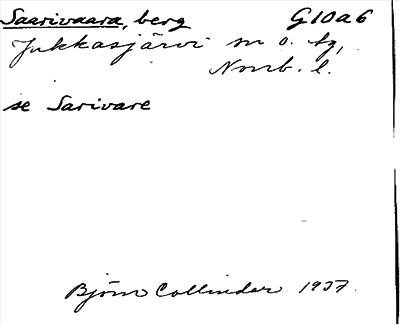 Saarivaara, berg G10a6
Jukkasjärvi sn o. tg,
Norrb. l.
se Sarivare
Björn Collinder 1937.